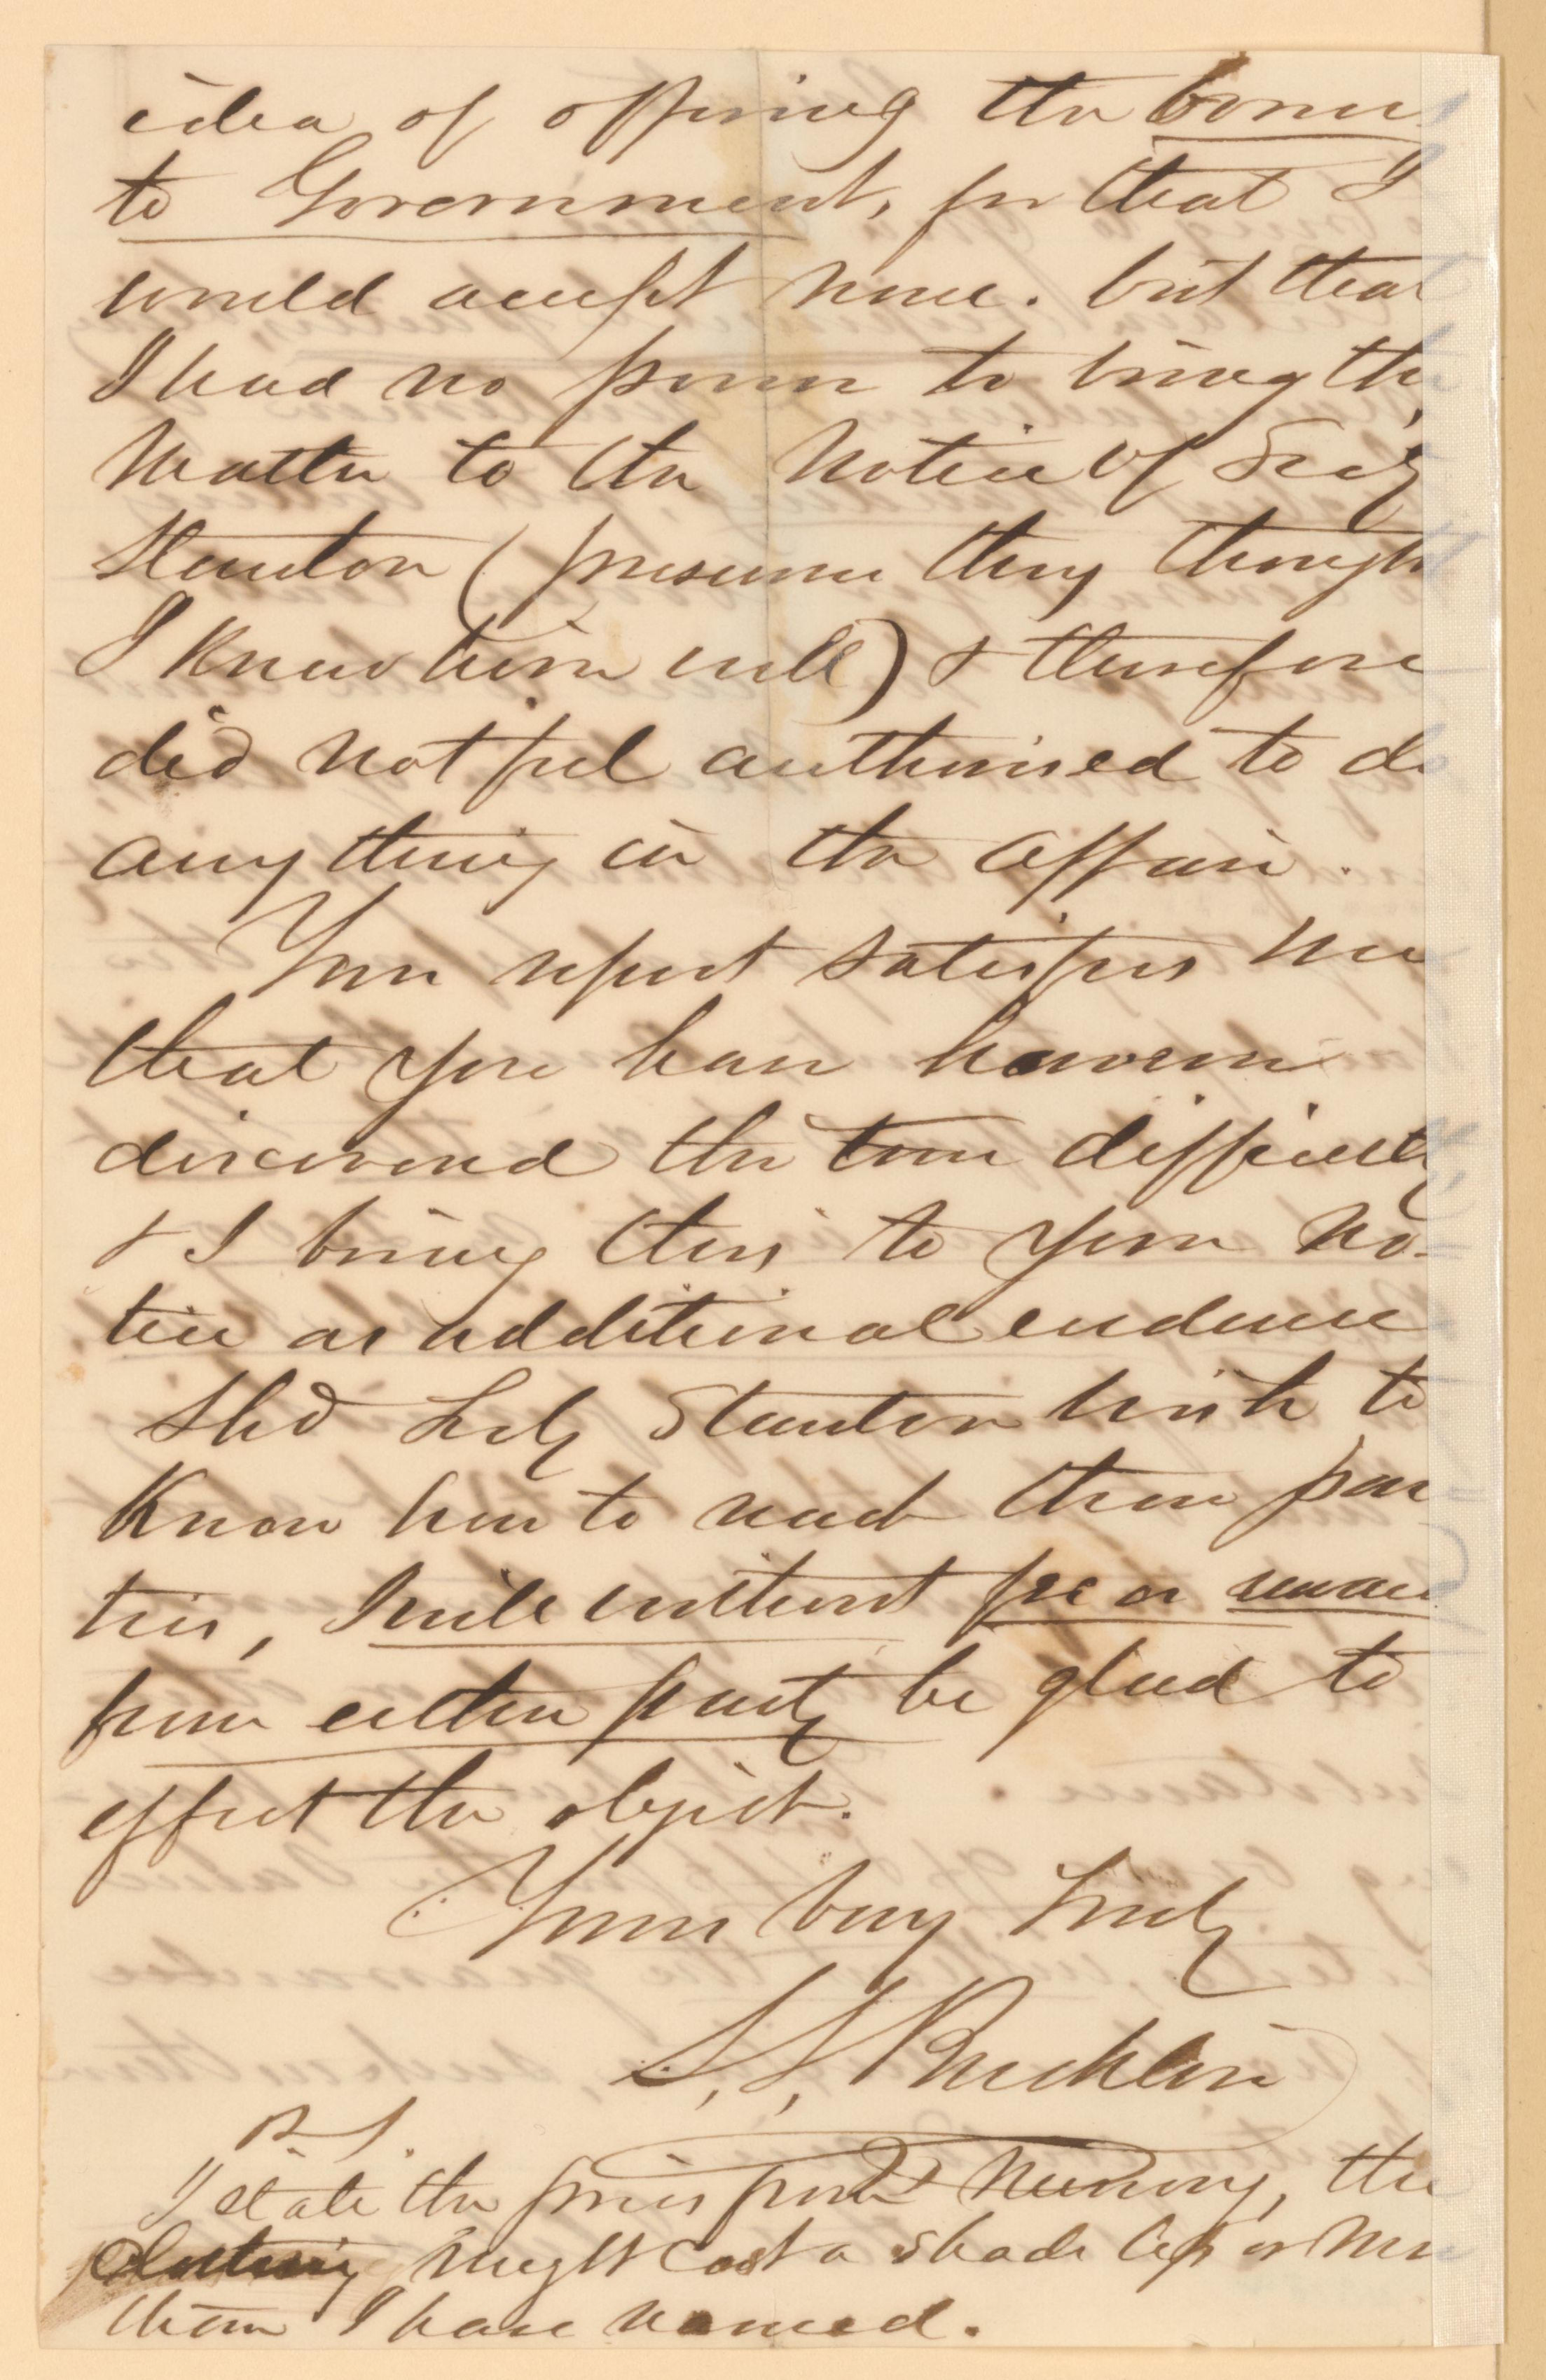 idea of offering the bonus
to Government, for that I
would accept none. but that
I had no power to bring the
matter to the notice of Secy
Stanton (presume they though
I knew him well) & therefore
did not feel authorised to do
any thing in the affair.
Your report satisfies me
that you have however
discovered the true difficulty
& I bring this to your no-
tice as additional evidence
Shd Secy Stanton wish to
Know how to reach these par
ties, I will without fee or rewar
from either party be glad to
effect the object.
Yours very truly
S. S. Bucklin
P.S.
I state the prices from memory, the
Clothing might cost a shade less or more
than I have named.